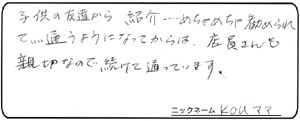 子供の友達から 紹介……めちゃめちゃ勧められ
て……通うようになってからは、店員さんも
親切なので続けて通っています。
ニックネーム KOUママ